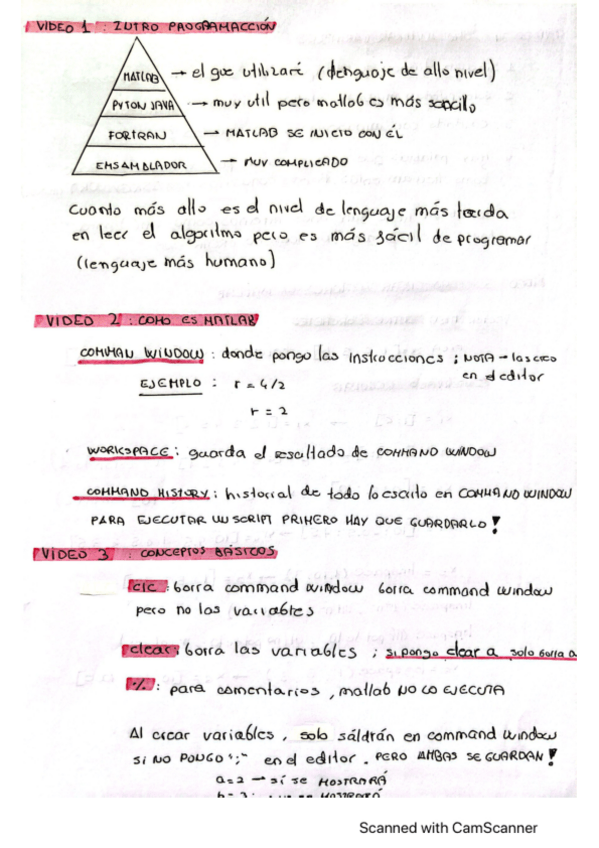 VIDEO 1 : INTRO PROGRAMACCIÓN
MATLAB → el que utilizaré (lenguaje de alto nivel)
PYTON JAVA → muy util pero matlab es más sencillo
FORTRAN → MATLAB SE INICIO CON ÉL
ENSAMBLADOR → MUY COMPLICADO
Cuanto más alto es el nivel de lenguaje más tarda
en leer el algoritmo pero es más fácil de programar
(lenguaje más humano)
VIDEO 2 : COMO ES MATLAB
COMMAN WINDOW : donde pongo las instrucciones ; NOTA - las creo
en el editor
EJEMPLO : r = 4/2
r = 2
WORKSPACE : guarda el resultado de COMMAND WINDOW
COMMAND HISTORY : historial de todo lo escrito en COMMAND WINDOW
PARA EJECUTAR UN SCRIPT PRIMERO HAY QUE GUARDARLO!
VIDEO 3 : CONCEPTOS BÁSICOS
clc : borra command window borra command window
pero no las variables
clear : borra las variables ; si pongo clear a solo borra a
% : para comentarios, matlab NO LO EJECUTA
Al crear variables, solo sáldrán en command window
SI NO PONGO ";" en el editor. PERO AMBAS SE GUARDAN!
a=2 → sí se MOSTRARÁ
b=3;
Scanned with CamScanner